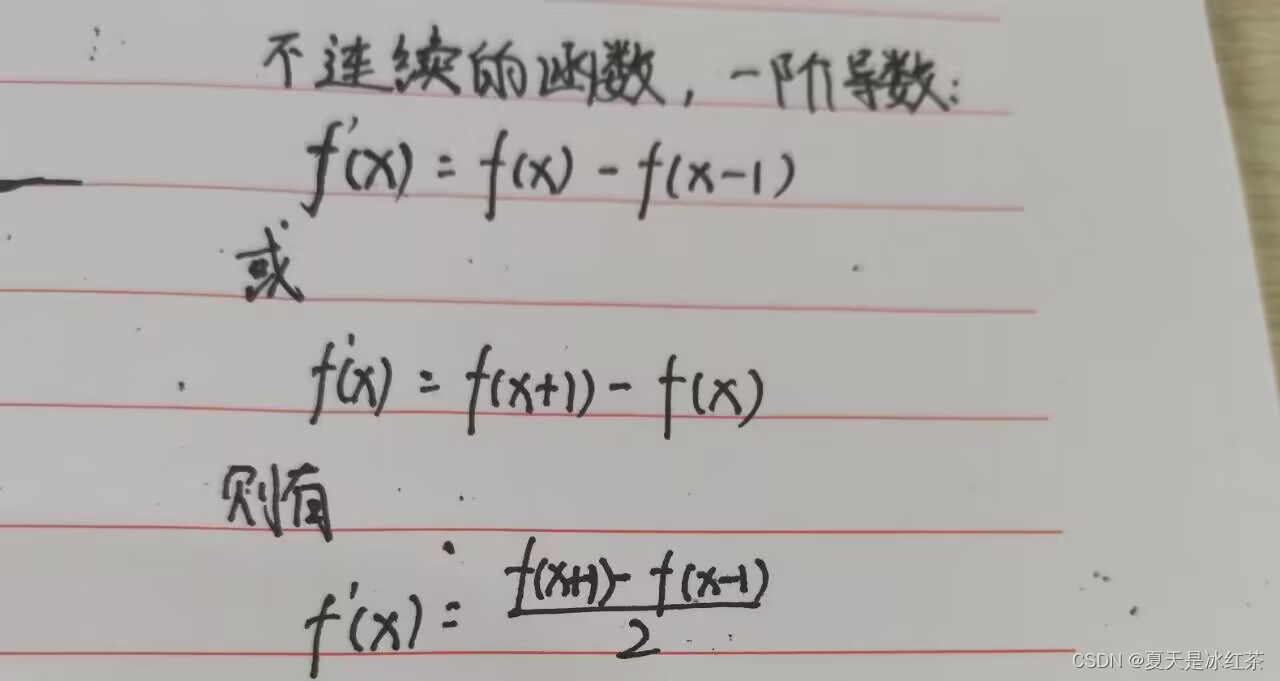 不连续的函数，一阶导数：
f'(x) = f(x) - f(x-1)
或
f'(x) = f(x+1) - f(x)
则有
f'(x) = \frac{f(x+1) - f(x-1)}{2}
CSDN @夏天是冰红茶